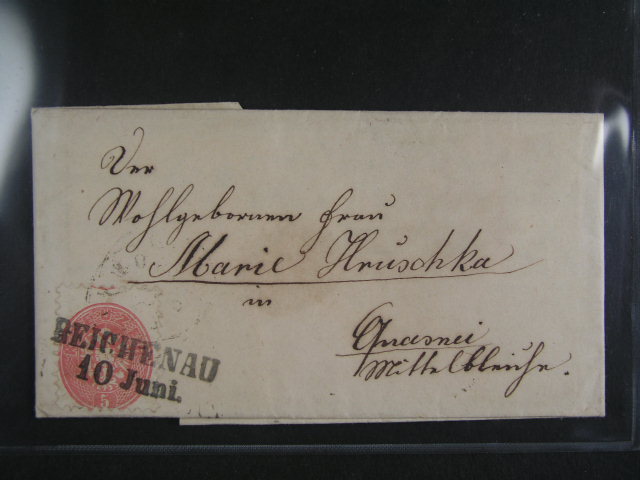 Der
Wohlgebornen Frau
Marie Hruschka
in
Quasnei
Mittelbleiche.
REICHENAU
10 Juni.
5